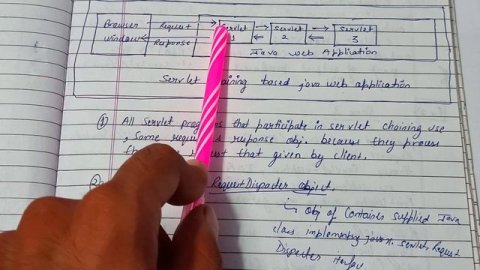 Browser Request → Servlet → Servlet → Servlet
window Response 1 ← 2 ← 3
Java web Application
Servlet chaining based java web application
① All Servlet programs that participate in servlet chaining use
same response obj. because they process
that given by client.
RequestDispacter object.
↳ Obj of Container supplied Java
class implementing javax. servlet. Request
Dispacter